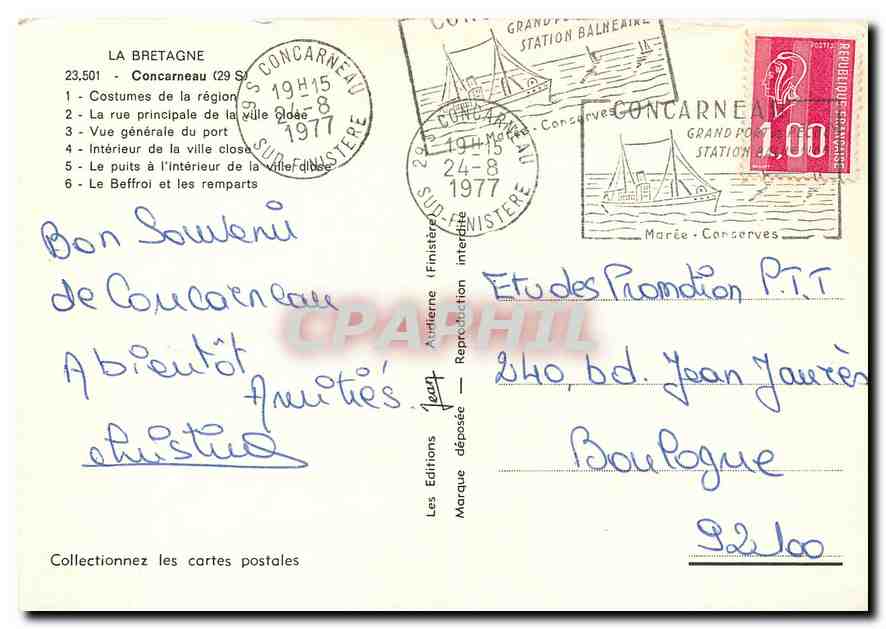 LA BRETAGNE
23,501 - Concarneau (29 S)
1 - Costumes de la région
2 - La rue principale de la ville close
3 - Vue générale du port
4 - Intérieur de la ville close
5 - Le puits à l'intérieur de la ville close
6 - Le Beffroi et les remparts
29 S CONCARNEAU
19H15
24-8
1977
SUD-FINISTERE
GRAND PORT
STATION BALNEAIRE
Marée - Conserves
29 S CONCARNEAU
19H15
24-8
1977
SUD-FINISTERE
CONCARNEAU
GRAND PORT DE PECHE
STATION BALNEAIRE
Marée - Conserves
1,00
POSTES
REPUBLIQUE FRANÇAISE
Bon Souvenir
de Concarneau
A bientôt
Amitiés.
Christine
Les Editions Jean Audierne (Finistère)
Marque déposée — Reproduction interdite
Etudes Promotion P.T.T
240, bd. Jean Jaurès
Boulogne
92100
Collectionnez les cartes postales
CPAPHIL